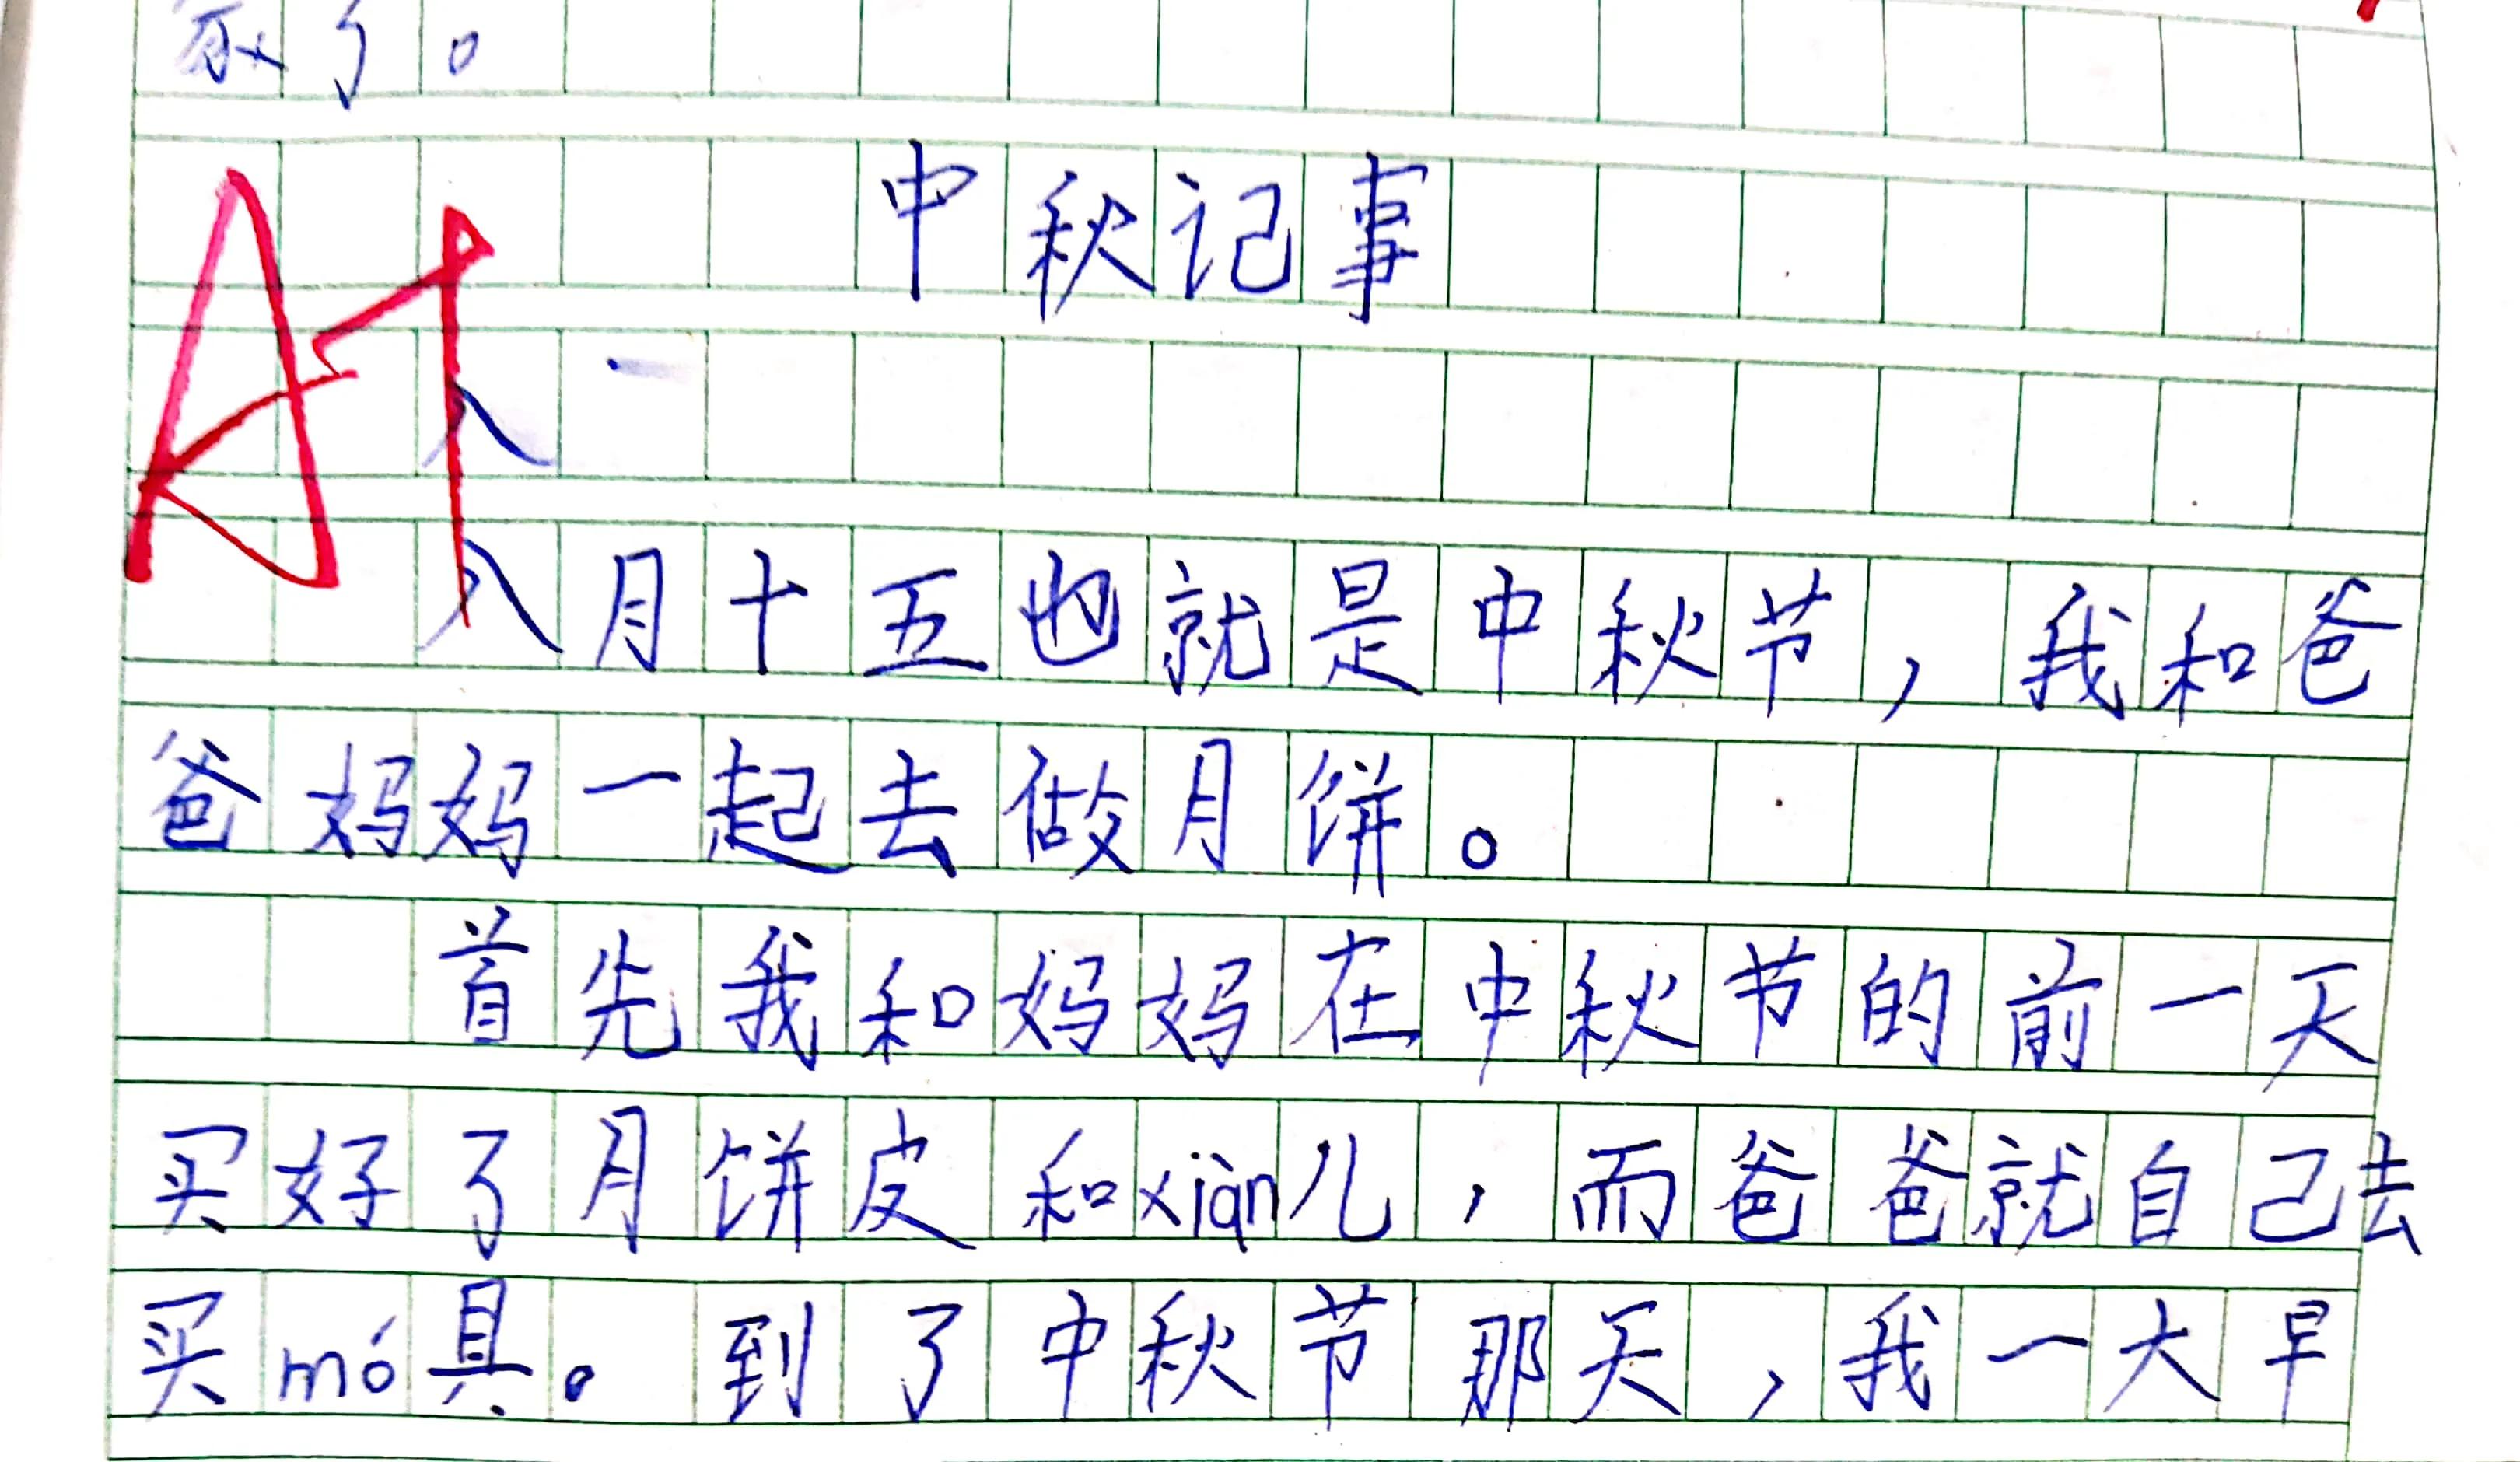 了。
中秋记事
A+
八月十五也就是中秋节，我和爸
爸妈妈一起去做月饼。
首先我和妈妈在中秋节的前一天
买好了月饼皮和xiàn儿，而爸爸就自己去
买mó具。到了中秋节那天，我一大早